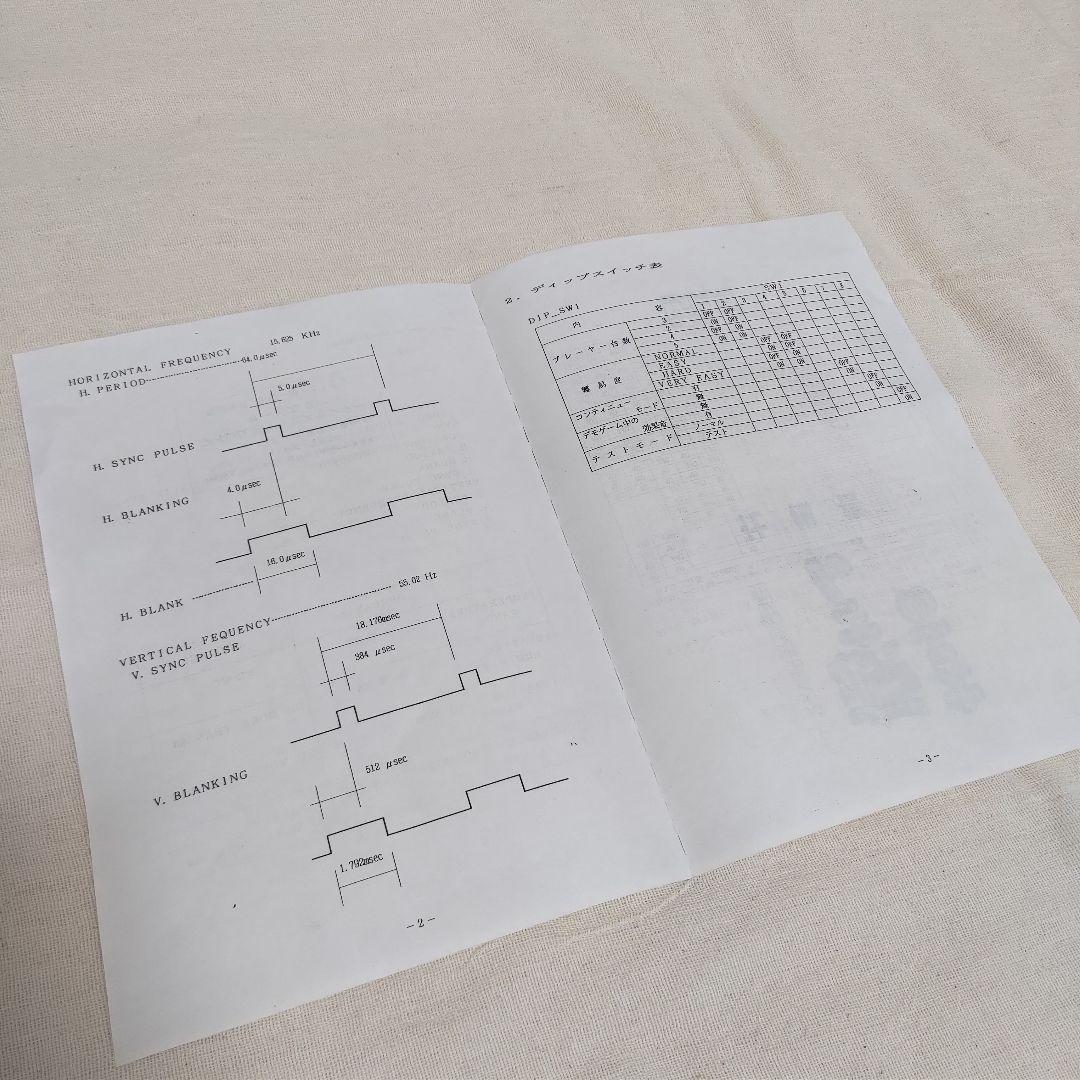 HORIZONTAL FREQUENCY 15.625 KHz
H. PERIOD 64.0μsec
5.0μsec
H. SYNC PULSE
4.0μsec
H. BLANKING
16.0μsec
H. BLANK
VERTICAL FEQUENCY 55.02 Hz
V. SYNC PULSE 18.176msec
384 μsec
512 μsec
V. BLANKING
1.792msec
-2-
2. ディップスイッチ表
DIP_SW1
内 容 SW1
1 2 3 4 5 6 7 8
プレーヤー台数 3 OFF OFF
2 ON OFF
1 OFF ON
5 ON ON
難易度 NORMAL OFF OFF
EASY ON OFF
HARD OFF ON
VERY EASY ON ON
コンティニューモード 有 OFF
無 ON
デモゲーム中の効果音 無 OFF
有 ON
テストモード ノーマル OFF
テスト ON
-3-